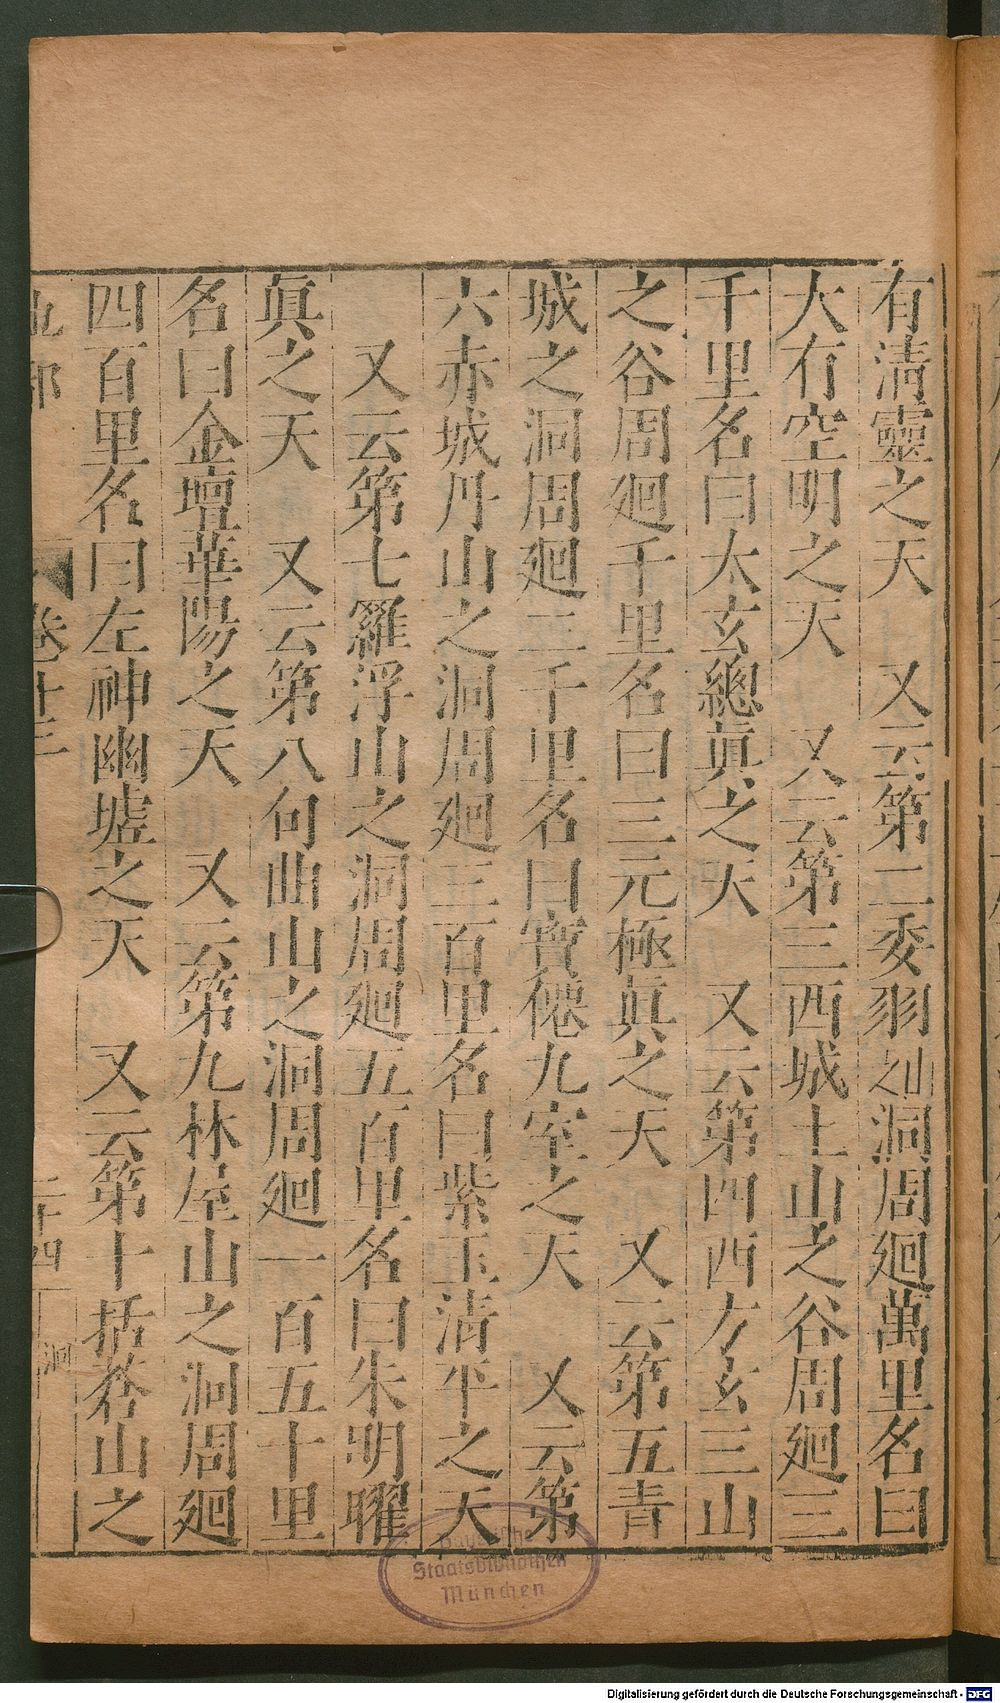 有清靈之天　又云第二委羽之山洞周廻萬里名曰
大有空明之天　又云第三西城王山之谷周廻三
千里名曰太玄總真之天　又云第四西方玄三山
之谷周廻千里名曰三元極真之天　又云第五青
城之洞周廻二千里名曰寶僊九室之天　又云第
六赤城丹山之洞周廻三百里名曰紫玉清平之天
又云第七羅浮山之洞周廻五百里名曰朱明曜
眞之天　又云第八句曲山之洞周廻一百五十里
名曰金壇華陽之天　又云第九林屋山之洞周廻
四百里名曰左神幽墟之天　又云第十括蒼山之
卷十三
二十四
洞
Bayerische
Staatsbibliothek
München
Digitalisierung gefördert durch die Deutsche Forschungsgemeinschaft - DFG